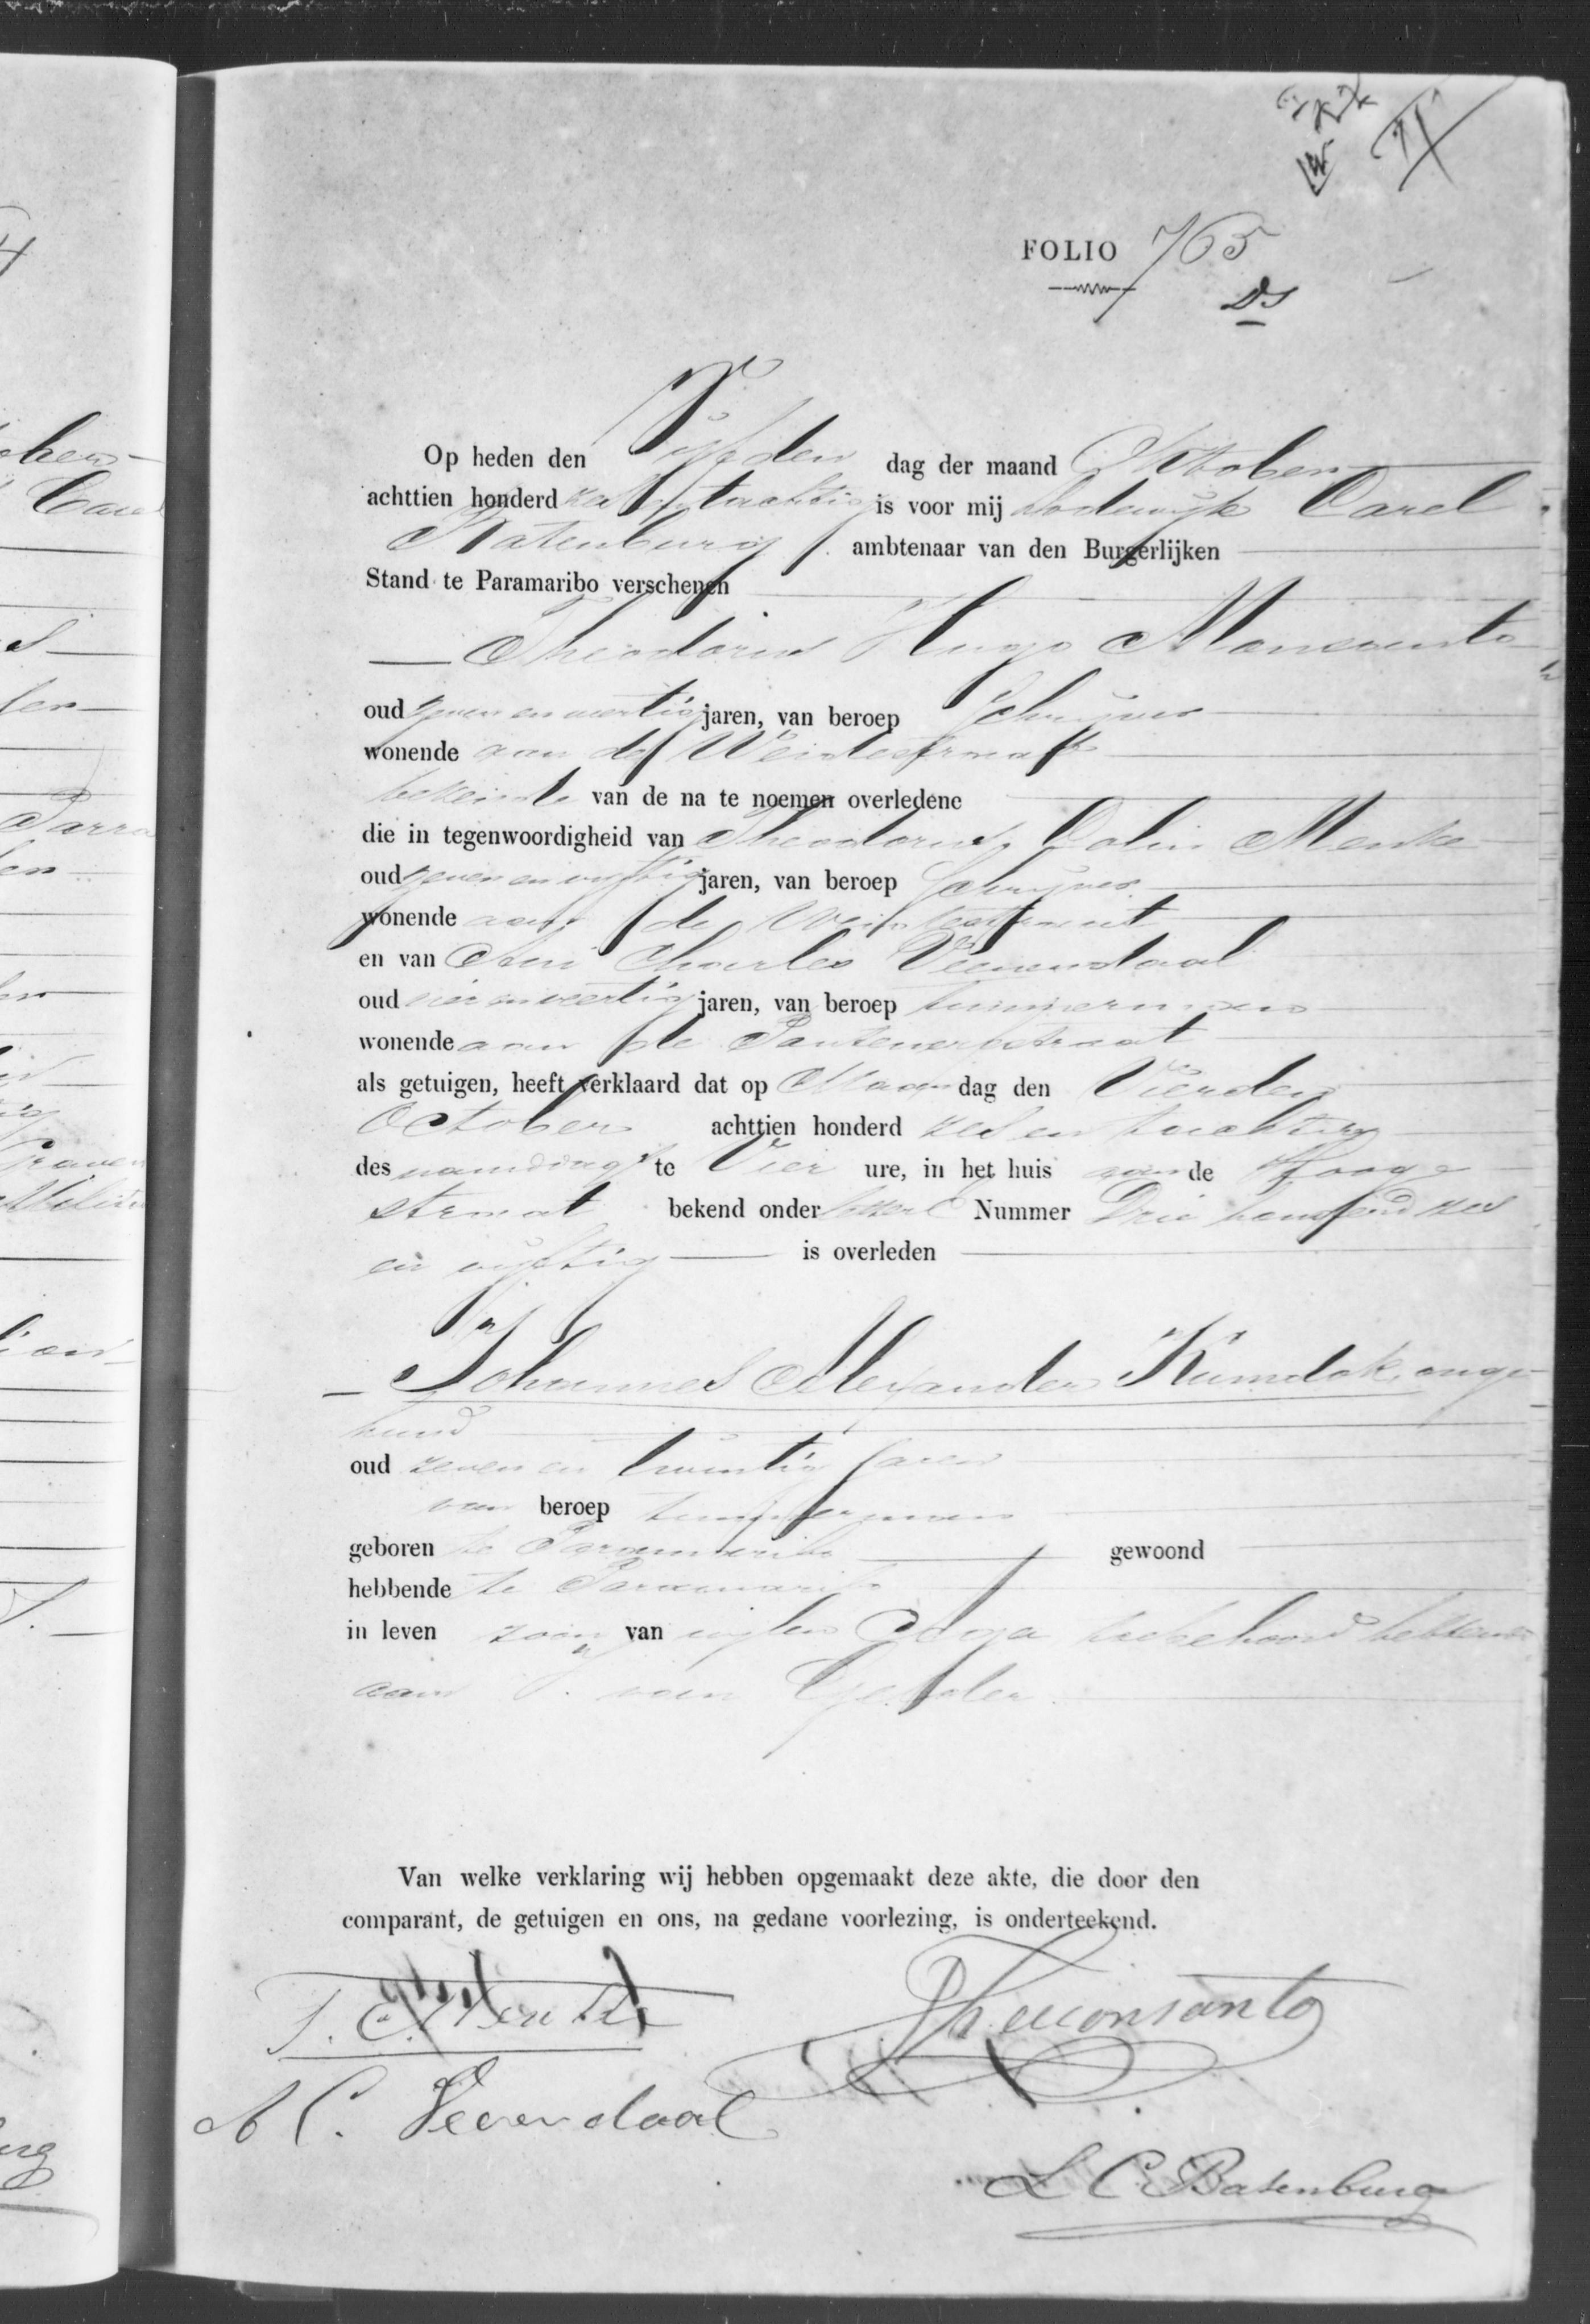 FOLIO 765
Ds
Op heden den Vyfden dag der maand Oktober
achttien honderd zes en tachtig is voor mij Lodewijk Carel
Batenburg ambtenaar van den Burgerlijken
Stand te Paramaribo verschenen
Theodorus Hugo Monsanto
oud zeven en veertig jaren, van beroep Schrijver
wonende aan de Weidestraat
bekende van de na te noemen overledene
die in tegenwoordigheid van Theodorus Colin Menke
oud zeven en vyftig jaren, van beroep Schrijver
wonende aan de Weidestraat
en van Charles Veenendaal
oud vier en veertig jaren, van beroep timmerman
wonende aan de Pontewerfstraat
als getuigen, heeft verklaard dat op Maandag den Vierden
October achttien honderd zes en tachtig
des namiddags te Vier ure, in het huis aan de Hooge
straat bekend onder letter C Nummer Drie honderd zes
en vyftig is overleden
Johannes Alexander Kumdok, onge-
huwd
oud zeven en twintig jaren
van beroep timmerman
geboren te Paramaribo gewoond
hebbende te Paramaribo
in leven zoon van wijlen toebehoord hebbende
aan J. van
Van welke verklaring wij hebben opgemaakt deze akte, die door den
comparant, de getuigen en ons, na gedane voorlezing, is onderteekend.
T. C. Menke
Th. Monsanto
A C. Veenendaal
L C. Batenburg